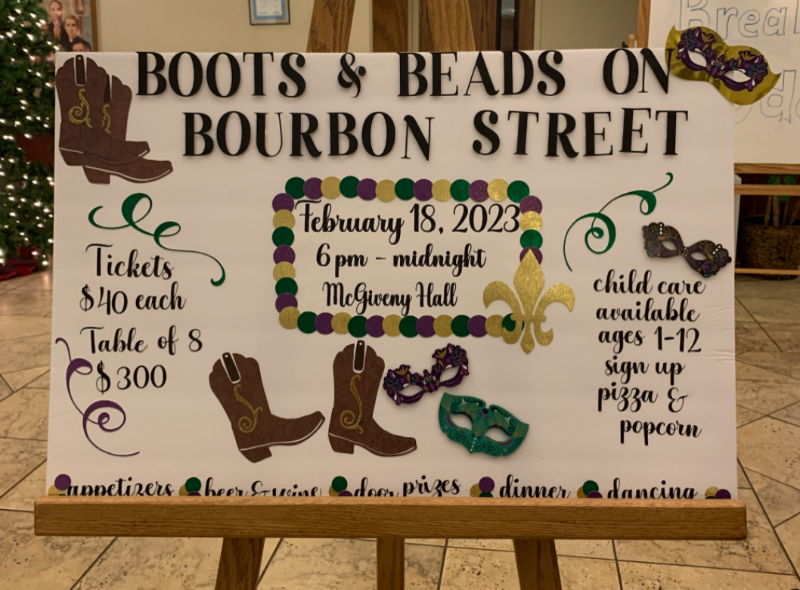 BOOTS & BEADS ON
BOURBON STREET
February 18, 2023
6 pm - midnight
McGiveny Hall
Tickets
$40 each
Table of 8
$300
child care
available
ages 1-12
sign up
pizza &
popcorn
appetizers beer & wine door prizes dinner dancing
Brea